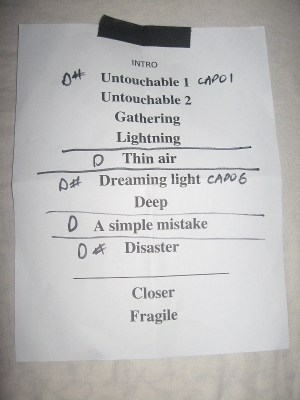 INTRO
D# Untouchable 1 CAPO 1
Untouchable 2
Gathering
Lightning
D Thin air
D# Dreaming light CAPO 6
Deep
D A simple mistake
D# Disaster
Closer
Fragile